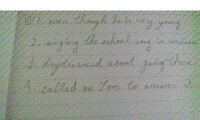 1. even though he is very young
2. singing the school song in unison
3. daydreamed about going there
4. called on Tom to answer it